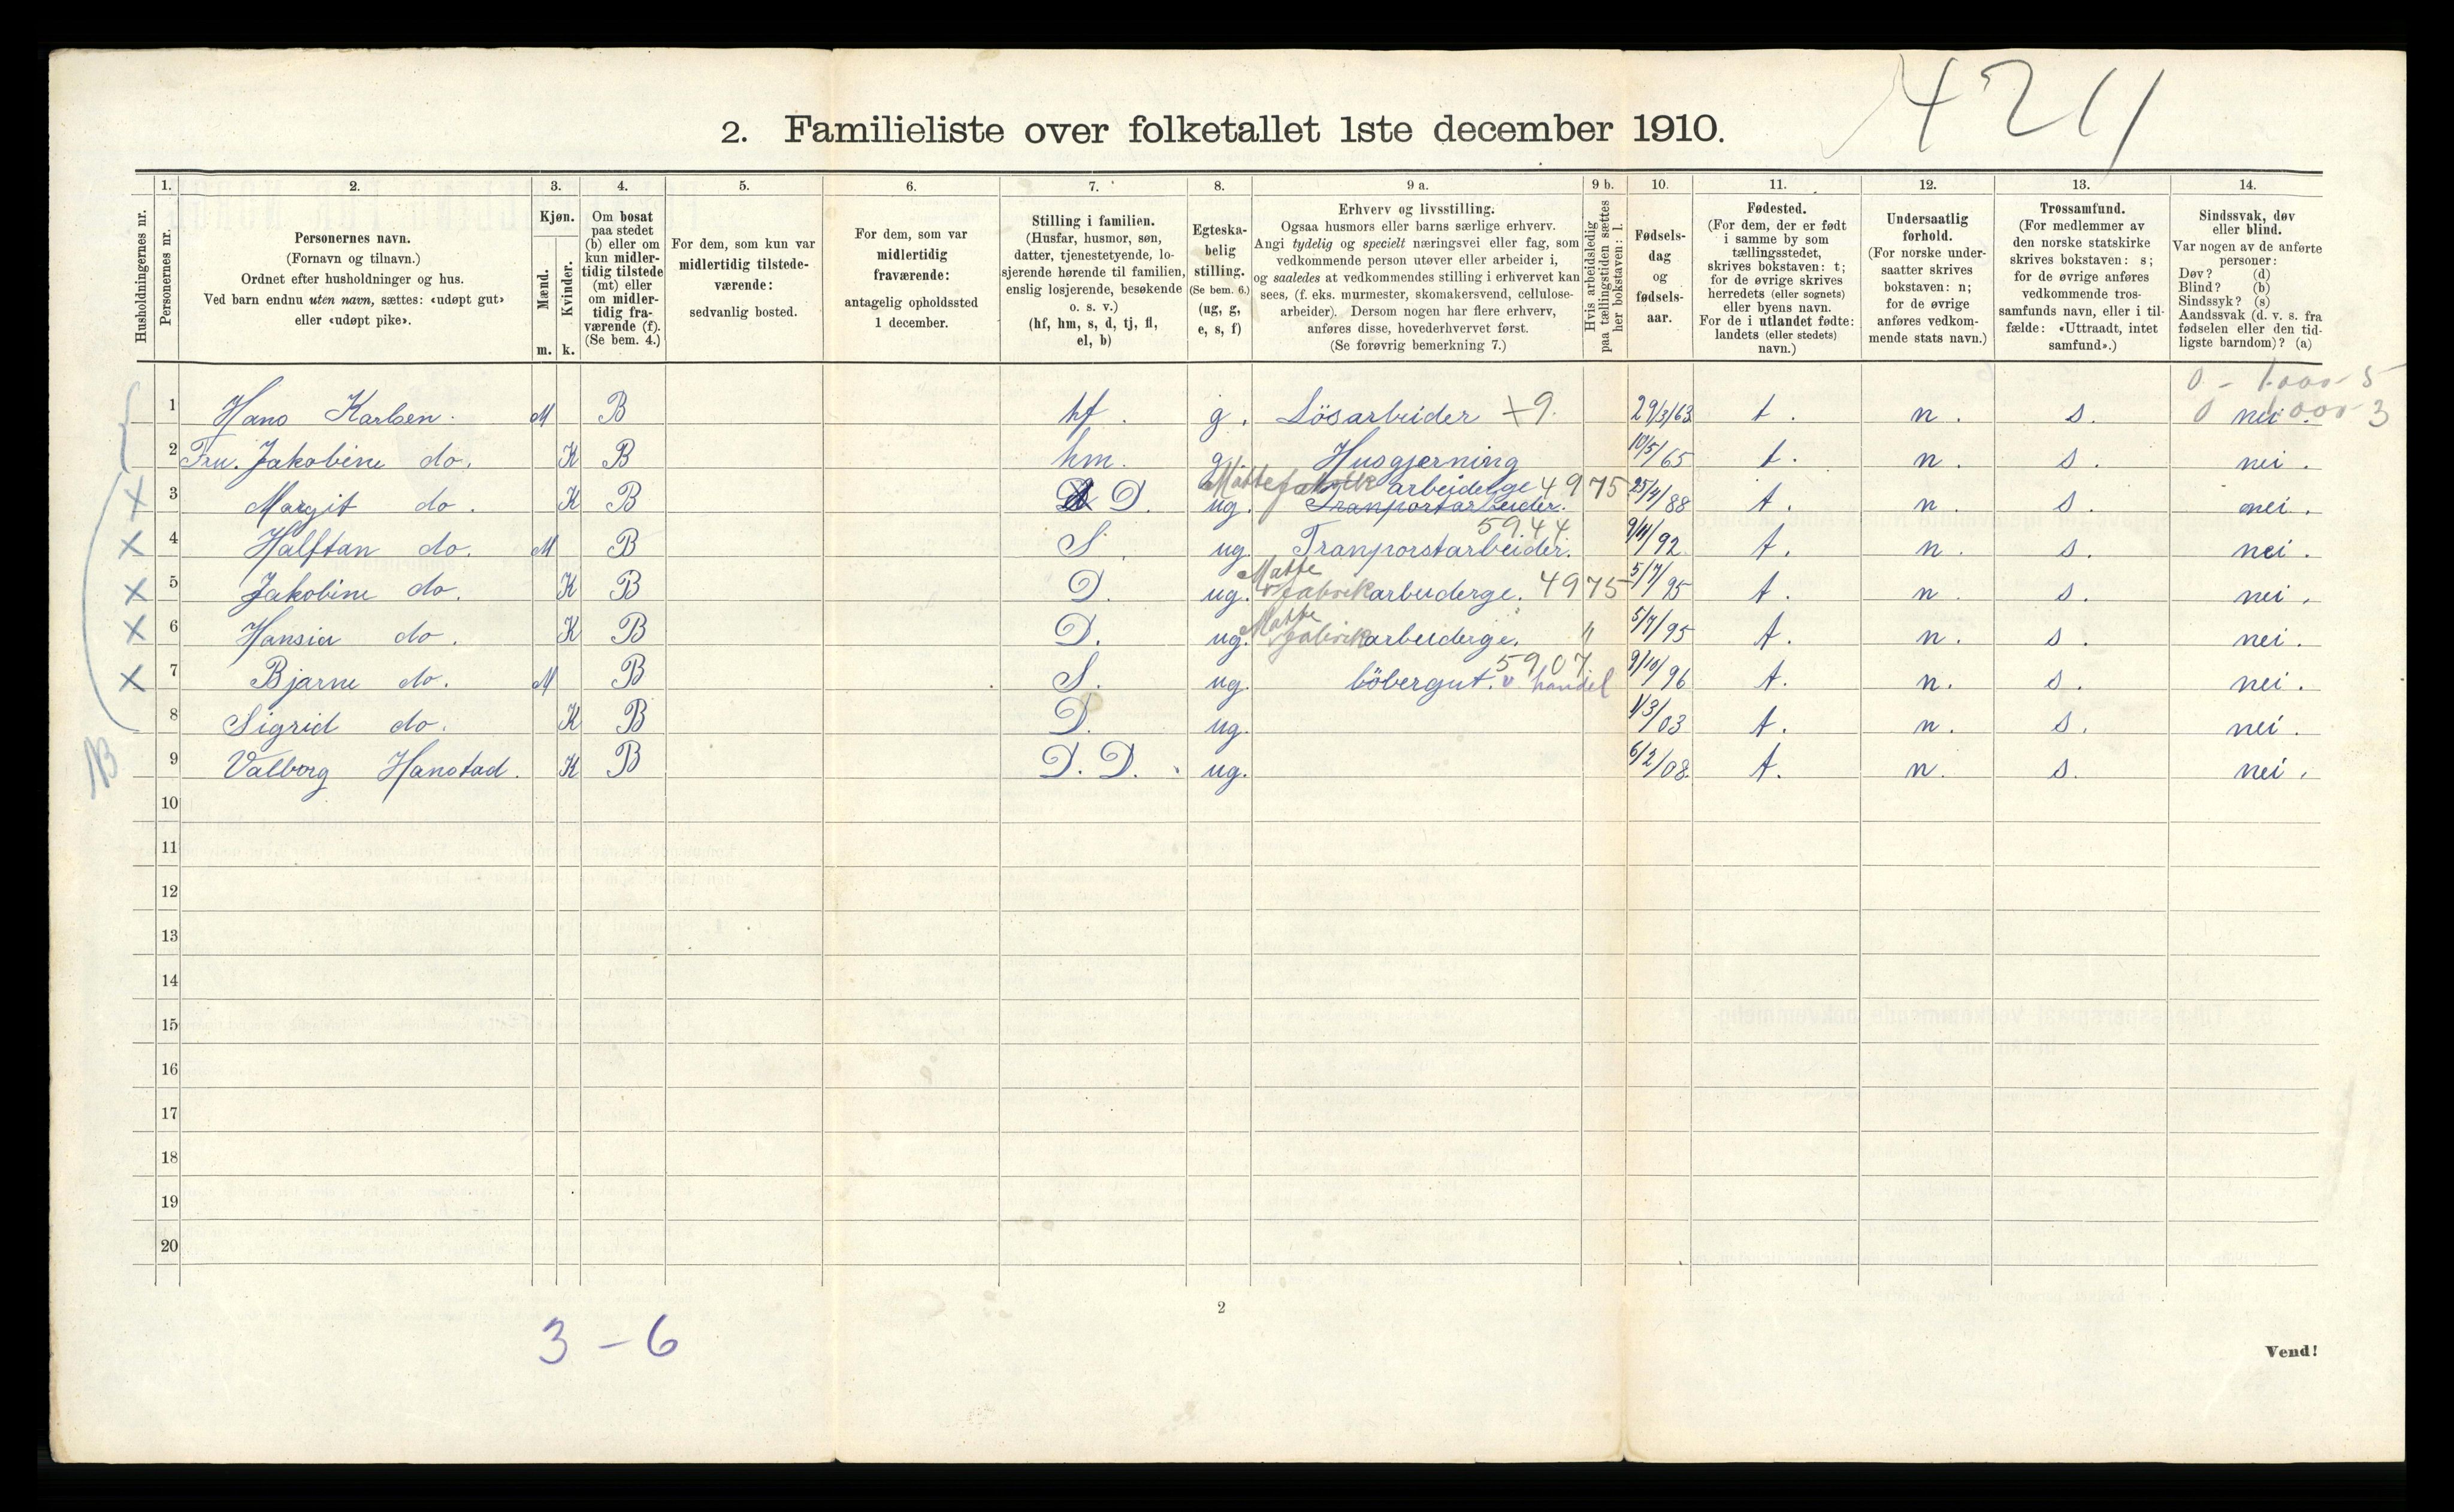 4211
2. Familieliste over folketallet 1ste december 1910.
Husholdningernes nr.
1. Personernes nr.
2. Personernes navn.
(Fornavn og tilnavn.)
Ordnet efter husholdninger og hus.
Ved barn endnu uten navn, sættes: «udøpt gut»
eller «udøpt pike».
3. Kjøn.
Mænd. m.
Kvinder. k.
4. Om bosat
paa stedet
(b) eller om
kun midler-
tidig tilstede
(mt) eller
om midler-
tidig fra-
værende (f).
(Se bem. 4.)
5. For dem, som kun var
midlertidig tilstede-
værende:
sedvanlig bosted.
6. For dem, som var
midlertidig
fraværende:
antagelig opholdssted
1 december.
7. Stilling i familien.
(Husfar, husmor, søn,
datter, tjenestetyende, lo-
sjerende hørende til familien,
enslig losjerende, besøkende
o. s. v.)
(hf, hm, s, d, tj, fl,
el, b)
8. Egteska-
belig
stilling.
(Se bem. 6.)
(ug, g,
e, s, f)
9 a. Erhverv og livsstilling.
Ogsaa husmors eller barns særlige erhverv.
Angi tydelig og specielt næringsvei eller fag, som
vedkommende person utøver eller arbeider i,
og saaledes at vedkommendes stilling i erhvervet kan
sees, (f. eks. murmester, skomakersvend, cellulose-
arbeider). Dersom nogen har flere erhverv,
anføres disse, hovederhvervet først.
(Se forøvrig bemerkning 7.)
9 b. Hvis arbeidsledig
paa tællingstiden sættes
her bokstaven: l.
10. Fødsels-
dag
og
fødsels-
aar.
11. Fødested.
(For dem, der er født
i samme by som
tællingsstedet,
skrives bokstaven: t;
for de øvrige skrives
herredets (eller sognets)
eller byens navn.
For de i utlandet fødte:
landets (eller stedets)
navn.)
12. Undersaatlig
forhold.
(For norske under-
saatter skrives
bokstaven: n;
for de øvrige
anføres vedkom-
mende stats navn.)
13. Trossamfund.
(For medlemmer av
den norske statskirke
skrives bokstaven: s;
for de øvrige anføres
vedkommende tros-
samfunds navn, eller i til-
fælde: «Uttraadt, intet
samfund».)
14. Sindssvak, døv
eller blind.
Var nogen av de anførte
personer:
Døv? (d)
Blind? (b)
Sindssyk? (s)
Aandssvak (d. v. s. fra
fødselen eller den tid-
ligste barndom)? (a)
0 - 1000-5
0 1000-3
1 Hans Karlsen. M B hf. g. Lösarbeider +9. 29/3/63 t. n. s. nei.
2 Fru. Jakobine do. K B hm. g. Husgjerning 10/5/65 t. n. s. nei.
3 Margit do. K B D. ug. Mattefabrik arbeiderge 4975 Tranportarbeider. 25/4/88 t. n. s. nei.
4 Halftan do. M B S. ug. Tranporstarbeider. 5944 9/11/92 t. n. s. nei.
5 Jakobine do. K B D. ug. Matte fabrikarbeiderge. 4975 5/7/95 t. n. s. nei.
6 Hansia do. K B D. ug. Matte fabrikarbeiderge. " 5/7/95 t. n. s. nei.
7 Bjarne do. M B S. ug. löbergut. v. handel 5907 9/10/96 t. n. s. nei.
8 Sigrid do. K B D. ug. 1/3/03 t. n. s. nei.
9 Valborg Hanstad. K B D. D. ug. 6/2/08. t. n. s. nei.
NB
10
11
12
13
14
15
16
17
18
19
20
2
3 - 6
Vend!